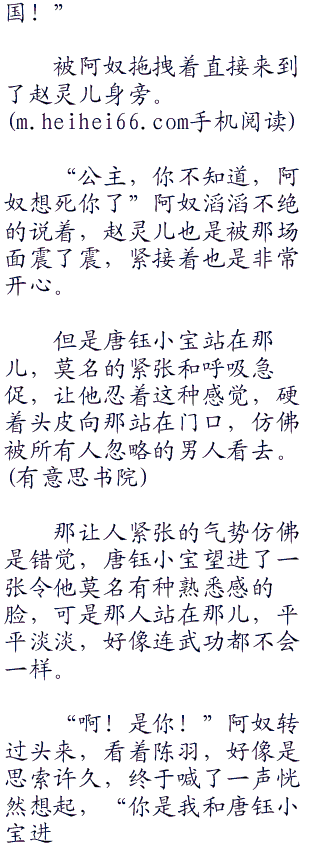 国！”
被阿奴拖拽着直接来到
了赵灵儿身旁。
(m.heihei66.com手机阅读)
“公主，你不知道，阿
奴想死你了”阿奴滔滔不绝
的说着，赵灵儿也是被那场
面震了震，紧接着也是非常
开心。
但是唐钰小宝站在那
儿，莫名的紧张和呼吸急
促，让他忍着这种感觉，硬
着头皮向那站在门口，仿佛
被所有人忽略的男人看去。
(有意思书院)
那让人紧张的气势仿佛
是错觉，唐钰小宝望进了一
张令他莫名有种熟悉感的
脸，可是那人站在那儿，平
平淡淡，好像连武功都不会
一样。
“啊！是你！”阿奴转
过头来，看着陈羽，好像是
思索许久，终于喊了一声恍
然想起，“你是我和唐钰小
宝进